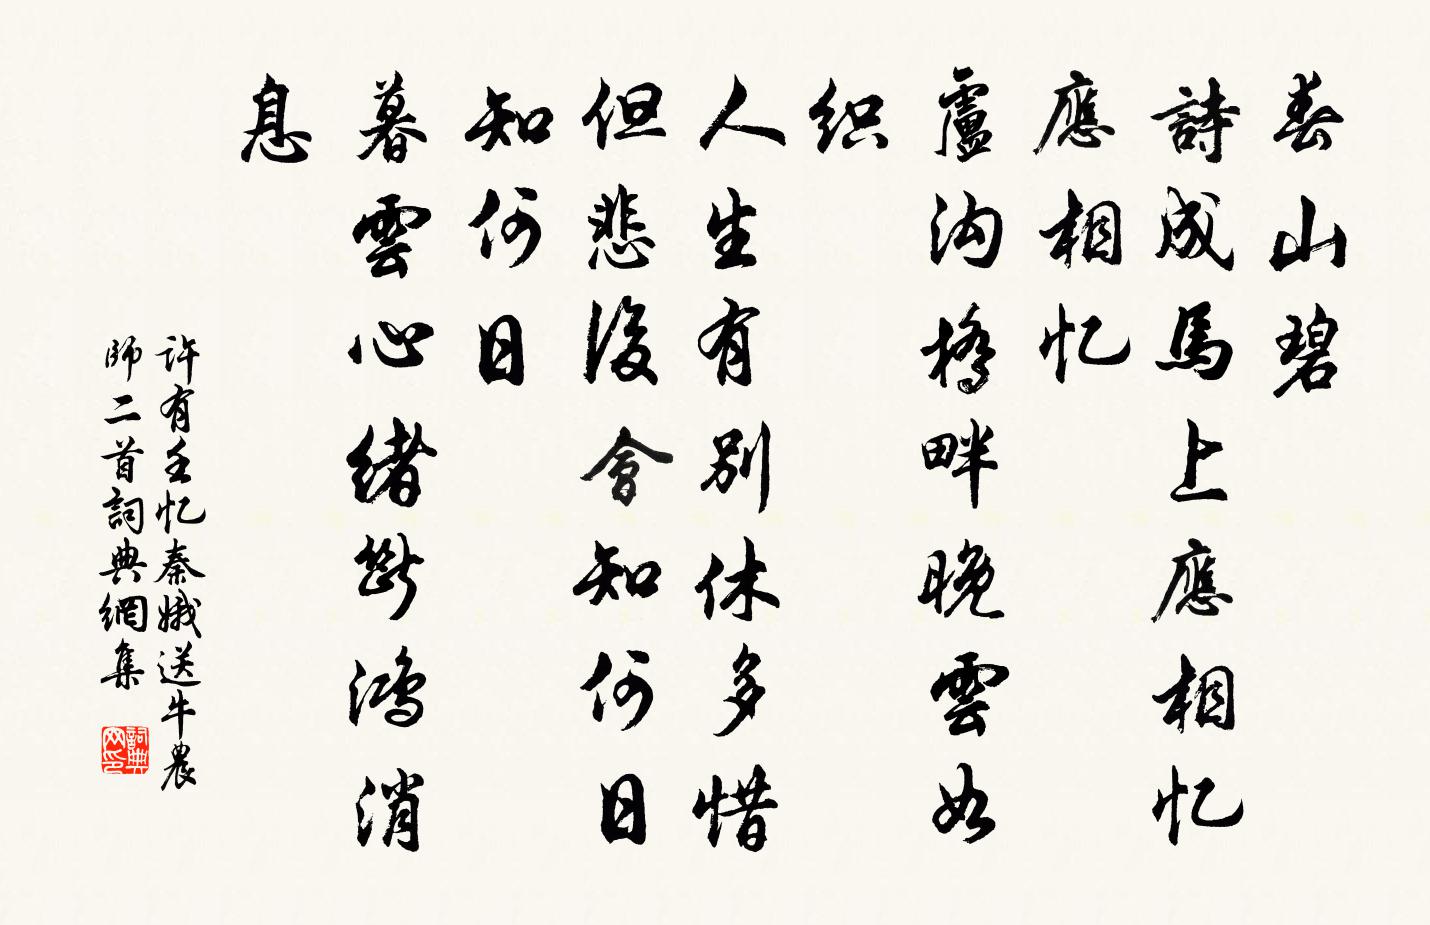 春山碧
詩成馬上應相忆
應相忆
盧沟橋畔晚雲如
织
人生有别休多惜
但悲後會知何日
知何日
暮雲心緒斷鴻消
息
许有壬忆秦娥送牛農
師二首詞典網集
詞典网印